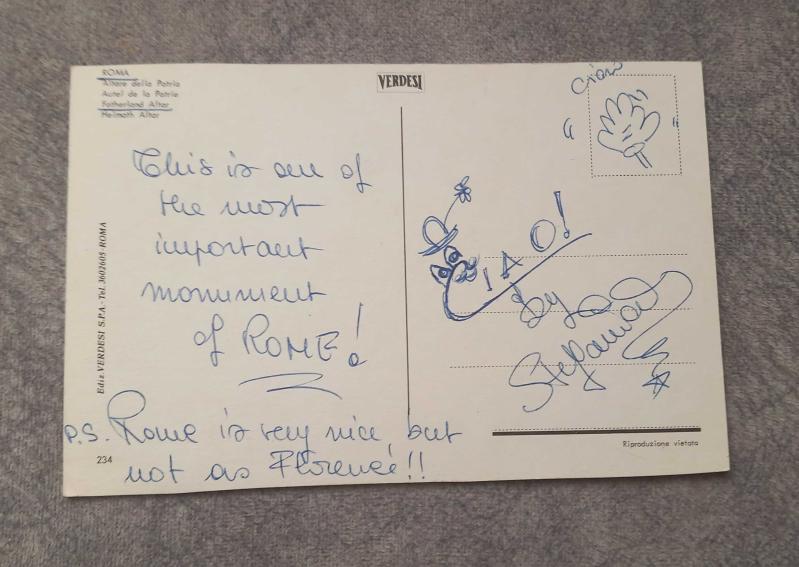 ROMA
Altare della Patria
Autel de la Patrie
Fatherland Altar
Helmath Altar
VERDESI
Ciao
This is one of
the most
important
monument
of ROME!
CIAO!
by
Stefania
P.S. Rome is very nice, but
not as Florence!!
234
Ediz. VERDESI S.P.A. - Tel. 3602605 - ROMA
Riproduzione vietata